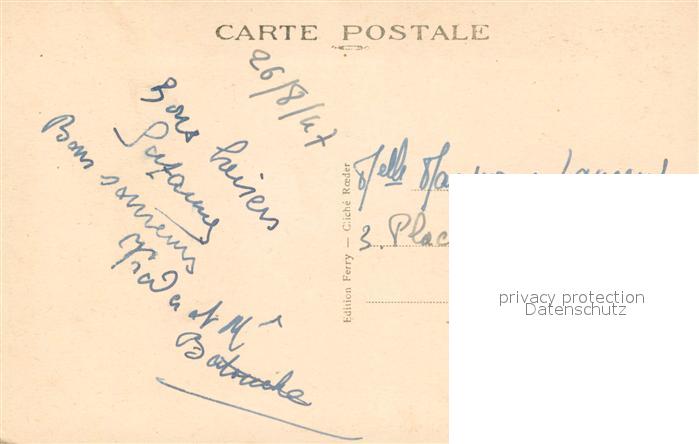 CARTE POSTALE
26/8/47
Bons baisers
Suzanne
Bons souvenirs
et M
Edition Ferry — Cliché Rœder
Melle
3. Plac
privacy protection
Datenschutz